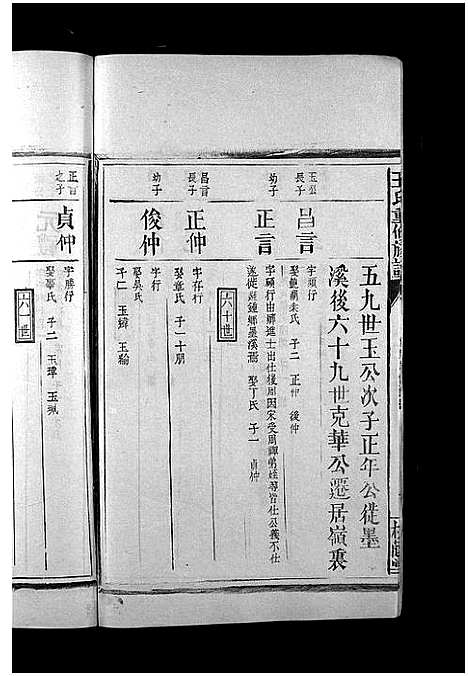 王氏重修族譜
五九世玉公次子正年公徙墨
溪後六十九世克華公遷居嶺裏
玉公長子
昌言
字頌行
娶 朱氏 子二 正仲 俊仲
幼子
正言
字碩行由鄉進士出仕後周因宋受周禪弟姪等皆仕公義不仕
遂徙 鍾鄉墨溪焉 娶丁氏 子一 貞仲
六十世
昌言長子
正仲
字存行
娶章氏 子一 十朋
幼子
俊仲
字行
娶吳氏
子二 玉 玉輪
六一世
正言之子
貞仲
字勝行
娶 氏 子二 玉瑋 玉珮